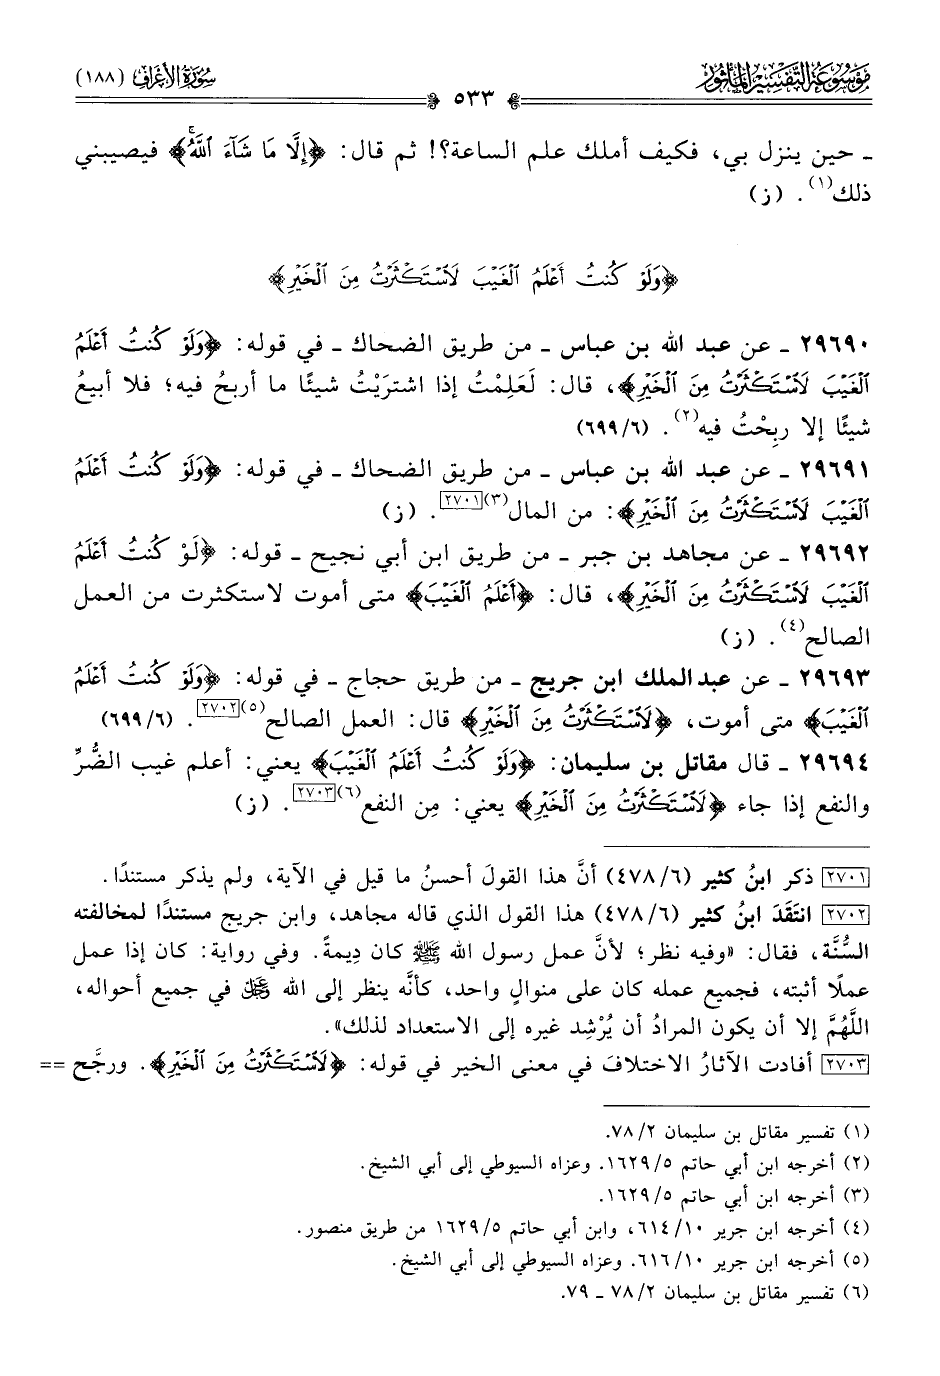 مَوْسُوعَةُ التَّفْسِيرِ المَأْثُور
٥٣٣
سُورَةُ الأَعْرَاف (١٨٨)
ـ حين ينزل بي، فكيف أملك علم الساعة؟! ثم قال: ﴿إِلَّا مَا شَآءَ ٱللَّهُۚ﴾ فيصيبني
ذلك(١). (ز)
﴿وَلَوْ كُنتُ أَعْلَمُ ٱلْغَيْبَ لَٱسْتَكْثَرْتُ مِنَ ٱلْخَيْرِ﴾
٢٩٦٩٠ ـ عن عبد الله بن عباس ـ من طريق الضحاك ـ في قوله: ﴿وَلَوْ كُنتُ أَعْلَمُ
ٱلْغَيْبَ لَٱسْتَكْثَرْتُ مِنَ ٱلْخَيْرِ﴾، قال: لَعَلِمْتُ إذا اشتريْتُ شيئًا ما أربحُ فيه؛ فلا أبيعُ
شيئًا إلا ربِحْتُ فيه(٢). (٦/ ٦٩٩)
٢٩٦٩١ ـ عن عبد الله بن عباس ـ من طريق الضحاك ـ في قوله: ﴿وَلَوْ كُنتُ أَعْلَمُ
ٱلْغَيْبَ لَٱسْتَكْثَرْتُ مِنَ ٱلْخَيْرِ﴾: من المال(٣)[٢٧٠١]. (ز)
٢٩٦٩٢ ـ عن مجاهد بن جبر ـ من طريق ابن أبي نجيح ـ قوله: ﴿لَوْ كُنتُ أَعْلَمُ
ٱلْغَيْبَ لَٱسْتَكْثَرْتُ مِنَ ٱلْخَيْرِ﴾، قال: ﴿أَعْلَمُ ٱلْغَيْبَ﴾ متى أموت لاستكثرت من العمل
الصالح(٤). (ز)
٢٩٦٩٣ ـ عن عبد الملك ابن جريج ـ من طريق حجاج ـ في قوله: ﴿وَلَوْ كُنتُ أَعْلَمُ
ٱلْغَيْبَ﴾ متى أموت، ﴿لَٱسْتَكْثَرْتُ مِنَ ٱلْخَيْرِ﴾ قال: العمل الصالح(٥)[٢٧٠٢]. (٦/ ٦٩٩)
٢٩٦٩٤ ـ قال مقاتل بن سليمان: ﴿وَلَوْ كُنتُ أَعْلَمُ ٱلْغَيْبَ﴾ يعني: أعلم غيب الضُّرِّ
والنفع إذا جاء ﴿لَٱسْتَكْثَرْتُ مِنَ ٱلْخَيْرِ﴾ يعني: مِن النفع(٦)[٢٧٠٣]. (ز)
[٢٧٠١] ذكر ابنُ كثير (٦/ ٤٧٨) أنَّ هذا القولَ أحسنُ ما قيل في الآية، ولم يذكر مستندًا.
[٢٧٠٢] انتَقَدَ ابنُ كثير (٦/ ٤٧٨) هذا القول الذي قاله مجاهد، وابن جريج مستندًا لمخالفته
السُّنَّة، فقال: «وفيه نظر؛ لأنَّ عمل رسول الله ﷺ كان دِيمةً. وفي رواية: كان إذا عمل
عملًا أثبته، فجميع عمله كان على منوالٍ واحد، كأنَّه ينظر إلى الله ﷿ في جميع أحواله،
اللَّهُمَّ إلا أن يكون المرادُ أن يُرْشِد غيره إلى الاستعداد لذلك».
[٢٧٠٣] أفادت الآثارُ الاختلافَ في معنى الخير في قوله: ﴿لَٱسْتَكْثَرْتُ مِنَ ٱلْخَيْرِ﴾. ورجَّح ==
(١) تفسير مقاتل بن سليمان ٢/ ٧٨.
(٢) أخرجه ابن أبي حاتم ٥/ ١٦٢٩. وعزاه السيوطي إلى أبي الشيخ.
(٣) أخرجه ابن أبي حاتم ٥/ ١٦٢٩.
(٤) أخرجه ابن جرير ١٠/ ٦١٤، وابن أبي حاتم ٥/ ١٦٢٩ من طريق منصور.
(٥) أخرجه ابن جرير ١٠/ ٦١٦. وعزاه السيوطي إلى أبي الشيخ.
(٦) تفسير مقاتل بن سليمان ٢/ ٧٨ ـ ٧٩.